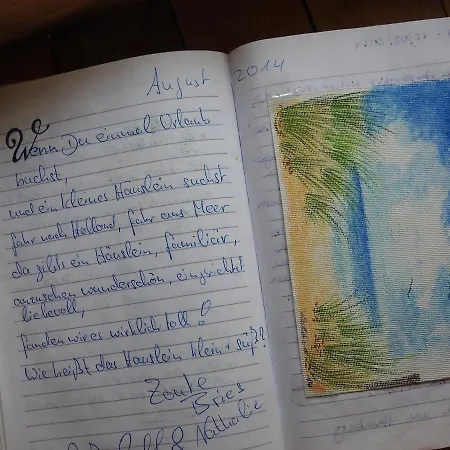 August 2014
Wenn Du einmal Urlaub
buchst,
und ein kleines Häuslein suchst
fahr nach Holland, fahr ans Meer
da gibts ein Häuslein, familiär,
anzusehen wunderschön, eingerichtet
liebevoll,
fanden wir es wirklich toll!
Wie heißt das Häuslein klein + süß?
Zoute
Bries
& Nathalie